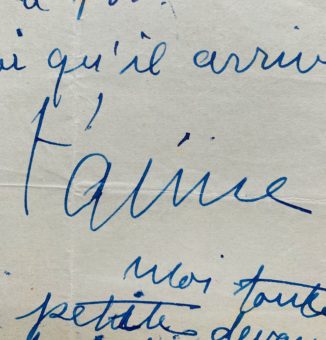 oi qu'il arriv
t'aime
moi toute
petite devan